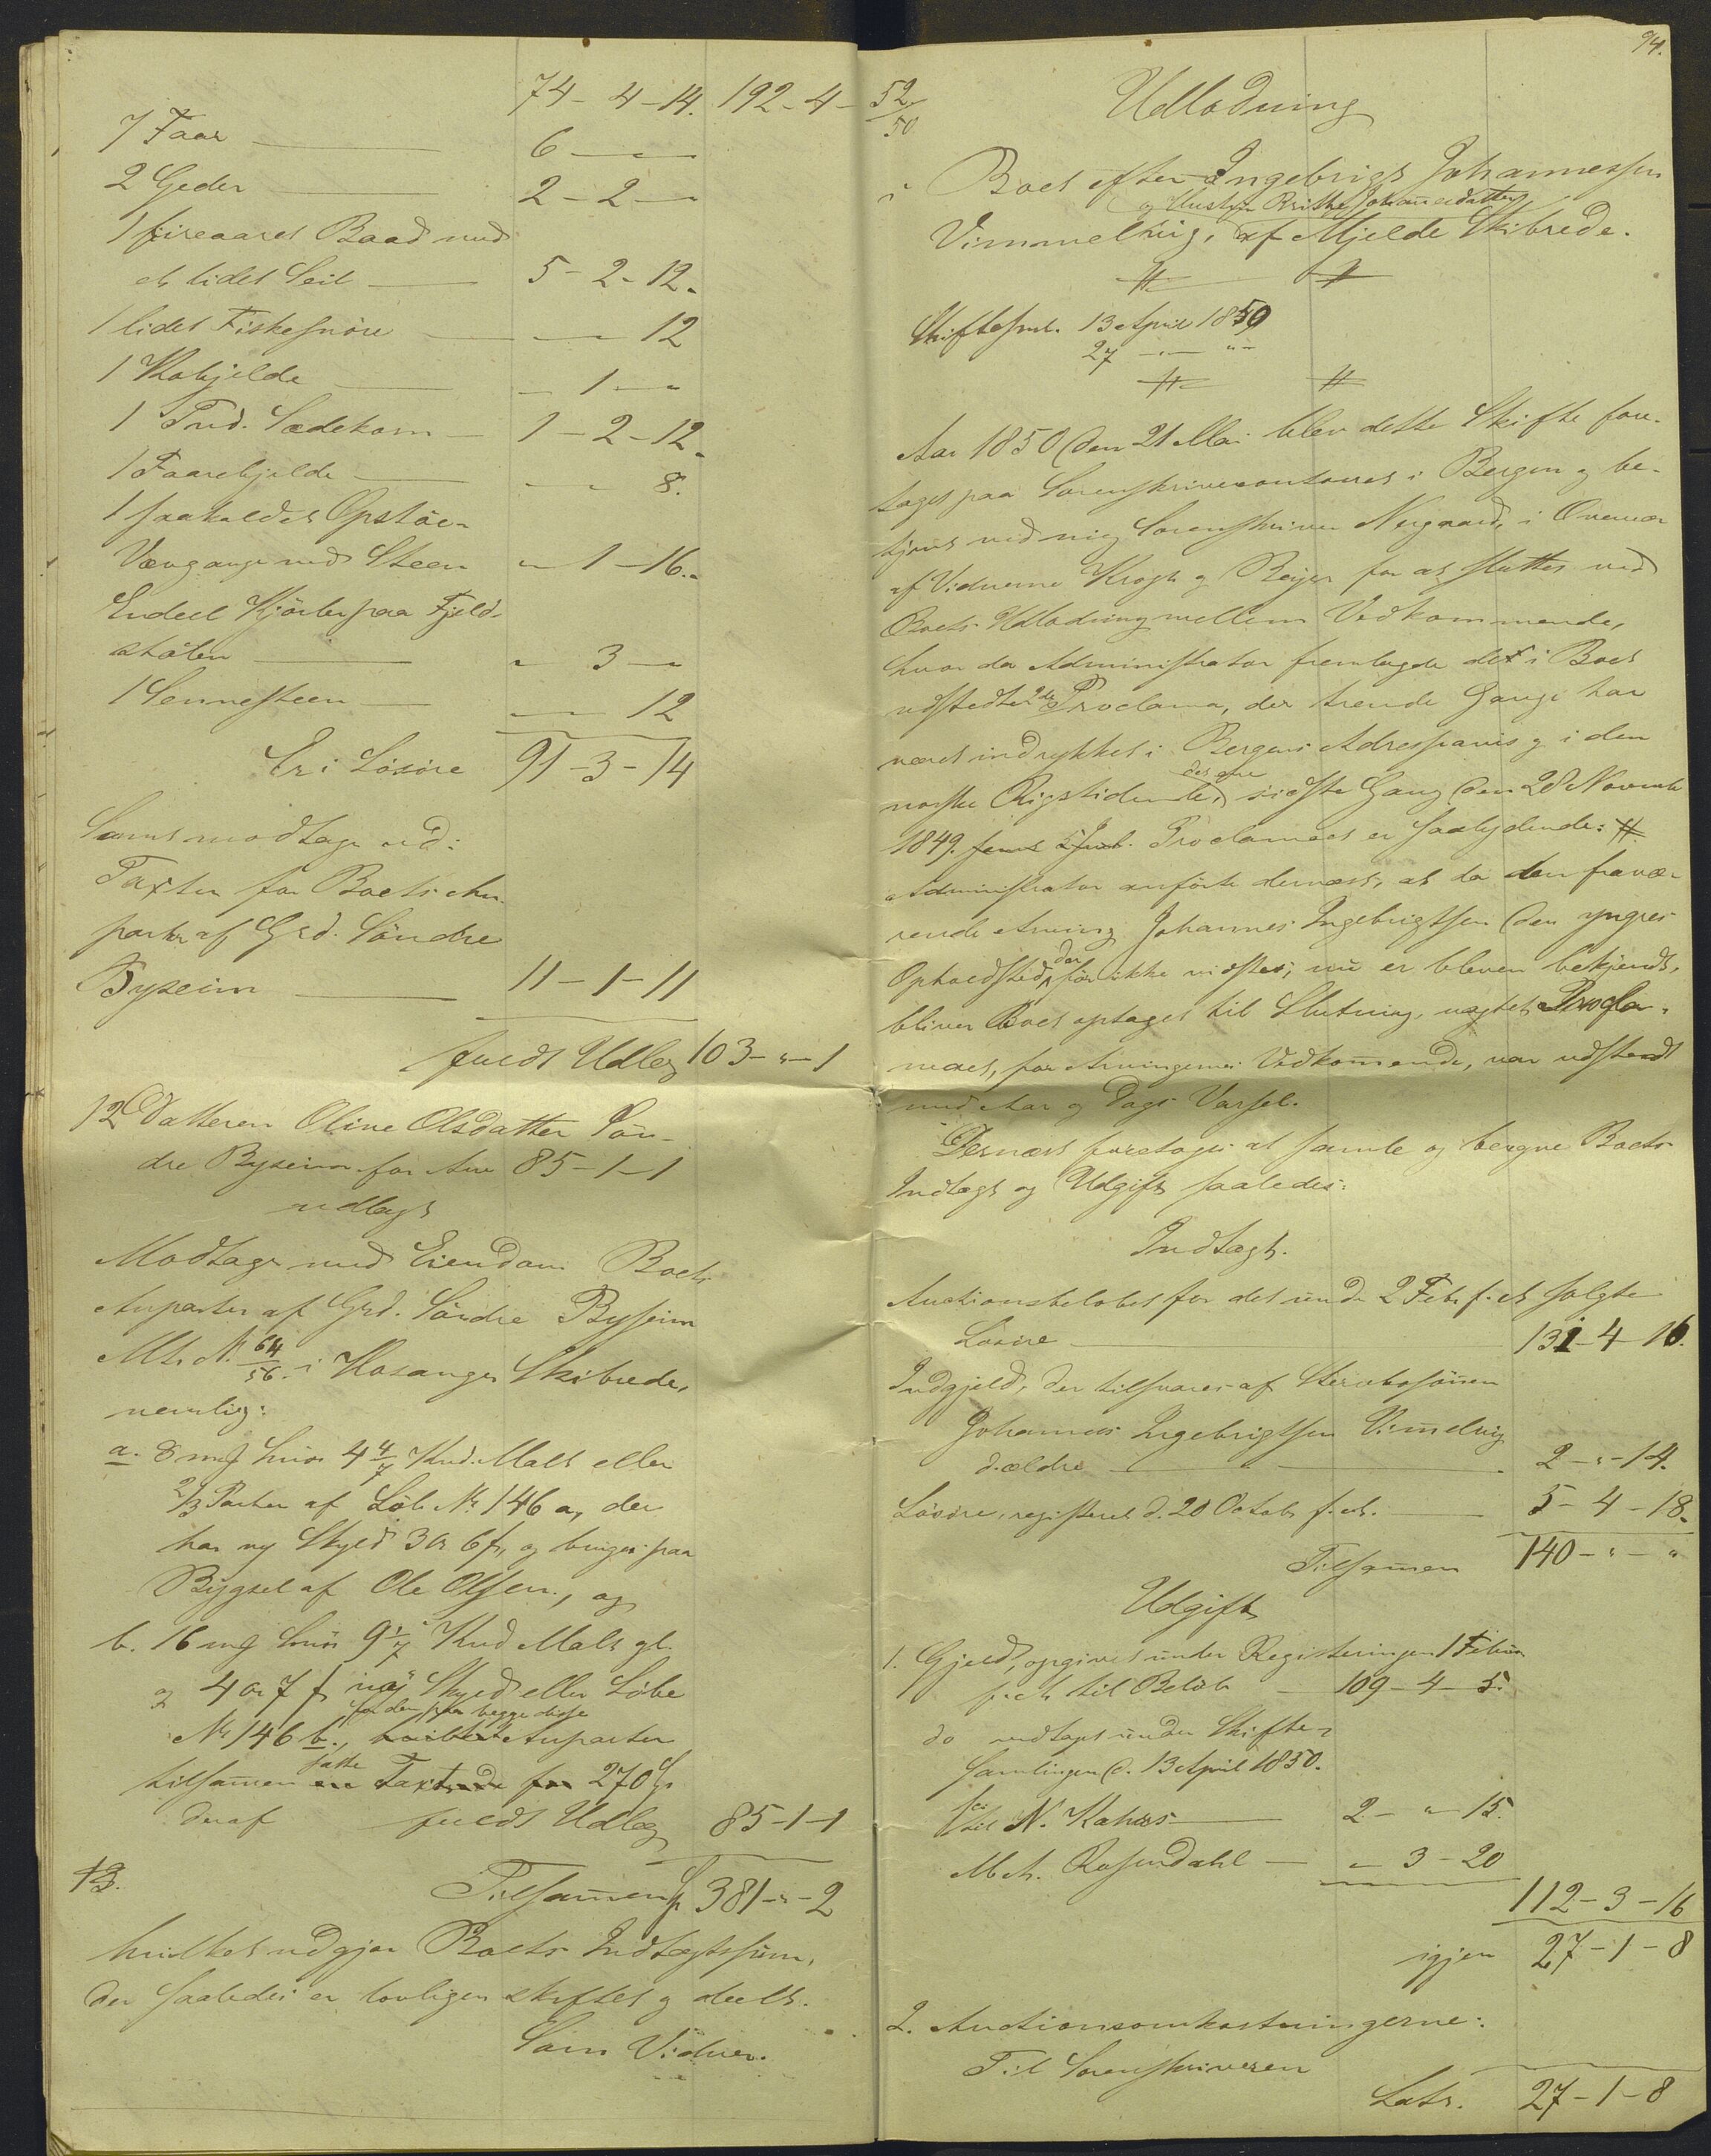 74 - 4 - 14. 192 - 4 -
7 Faar 6 - " - "
2 Geder 2 - 2 - "
1 fireaaret Baad med
et lidet Seil 5 - 2 - 12.
1 lidet Fiskesnöre " - " - 12
1 Kobjelde " - 1 - "
1 Tnd. Sædekorn 1 - 2 - 12.
1 Faarebjelde " - " - 8.
1 saakaldet Opstöe-
Vævgange med Steen " - 1 - 16.
Endeel Kjörler paa Fjeld-
stölen " - 3 - "
1 Sennesteen " - " - 12
Er i Lösöre 91 - 3 - 14
Samt modtage ved:
Taxten for Boets An-
parter af Grd. Söndre
Byseim 11 - 1 - 11
fuldt Udlæg 103 - " - 1
12 Datteren Oline Olsdatter Sön-
dre Byseim for Arv 85 - 1 - 1
udlagt
Modtage med Eiendom Boets
Anparter af Grd. Söndre Byseim
Mt. N. 64/56 i Hosanger Skibrede,
nemlig:
a. 8 mk Smör 4 4/7 Knd. Malt eller
2/3 Parter af Löb. Nr. 146 a, der
har ny Skyld 3 Ort 6 s, og bruges paa
Bygsel af Ole Olsen, og
b. 16 mk Smör 9 1/7 Knd Malt gl.
og 4 Ort 7 s ny Skyld eller Löbe
for den paa begge disse
Nr. 146 b., Anparter
satte
tilsammen Taxt 270 Sp
deraf fuldt Udlæg 85 - 1 - 1
13.
Tilsammen Sp 381 - " - 2
hvilket udgjør Boets Indtægtssum,
der saaledes er lovligen skiftet og deelt.
Som Vidner.
94.
52/50
Udlodning
i Boet efter Ingebrigt Johannessen
og Hustru Brithe Johannesdatter
Vimmelvig, af Mjelde Skibrede.
Skiftesml. 13 April 1850
27 - " - " -
Aar 1850 den 21 Mai blev dette Skifte fore-
taget paa Sorenskrivercontoret i Bergen og be-
tjent ved mig Sorenskriver Nergaard, i Overvær
af Vidnerne Krogh og Beyer for at sluttes ved
Boets Udlodning mellem Vedkommende,
hvor da Administrator fremlagde det i Boet
udstedte Proclama, der trende Gange har
været indrykket i Bergens Adresseavis og i den
det ene
norske Rigstidende, sidste Gang den 28 Novemb
1849. Proclamaet er saalydende:
Administrator anförte dernæst, at da den fravæ-
rende Arving Johannes Ingebrigtsen den yngres
der
Opholdsted, för ikke vidstes, nu er bleven bekjendt,
bliver Boet optaget til Slutning, uagtet Procla-
maet, for Arvingernes Vedkommende, var udstedt
med Aar og Dags Varsel.
Dernæst foretoges at samle og beregne Boets
Indtægt og Udgift saaledes:
Indtægt.
Auctionsbelöbet for det under 2 Febr f. A. solgte
Lösöre 131 - 4 - 16.
Indgjeld, der tilsvares af Stervbosönnen
Johannes Ingebrigtsen Vimelvig
d. ældre 2 - " - 14.
Lösöre, registeret d. 20 Octob f. A. 5 - 4 - 18.
Tilsammen 140 - " - "
Udgift
1. Gjeld, opgivet under Registeringen 1 Februar
f. A. til Belöb 109 - 4 - 5.
do vedtaget under Skifte-
samlingen d. 13 April 1850.
til N. Kahrs 2 - " - 15.
Mad. Rosendahl " - 3 - 20
112 - 3 - 16
igjen 27 - 1 - 8
2. Auctionsomkostningerne:
Til Sorenskriveren
Lats. 27 - 1 - 8